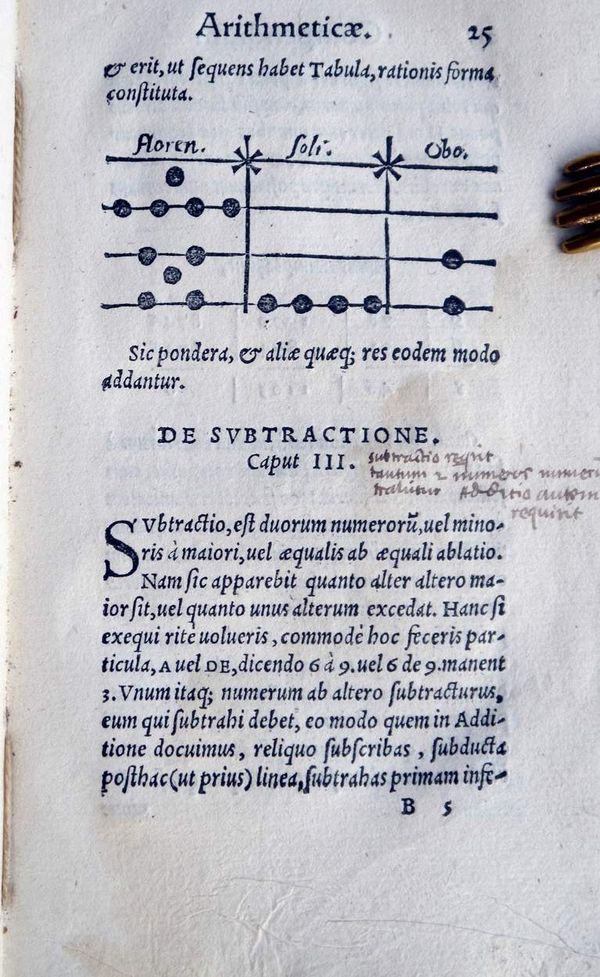 Arithmeticæ. 25
& erit, ut ſequens habet Tabula, rationis forma
conſtituta.
floren. ſoli. Obo.
Sic pondera, & aliæ quæq; res eodem modo
addantur.
DE SVBTRACTIONE.
Caput III.
subtractio
numeros
additio autem
SVbtractio, eſt duorum numerorū, uel mino-
ris à maiori, uel æqualis ab æquali ablatio.
Nam ſic apparebit quanto alter altero ma-
ior ſit, uel quanto unus alterum excedat. Hanc ſi
exequi ritè uolueris, commodè hoc feceris par-
ticula, A uel DE, dicendo 6 à 9. uel 6 de 9. manent
3. Vnum itaq; numerum ab altero ſubtracturus,
eum qui ſubtrahi debet, eo modo quem in Addi-
tione docuimus, reliquo ſubſcribas, ſubducta
poſthac (ut prius) linea, ſubtrahas primam infe-
B 5